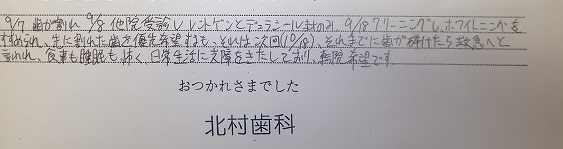 9/7 歯が割れ 9/8 他院受診しレントゲンとデュラシール封のみ、9/18 クリーニングし、ホワイトニングを
すすめられ、先に割れた歯を優先希望するも、それは次回(10/18)、それまでに歯が砕けたら救急へと
言われ、食事も睡眠も 、日常生活に支障をきたしており、転院希望です。
おつかれさまでした
北村歯科